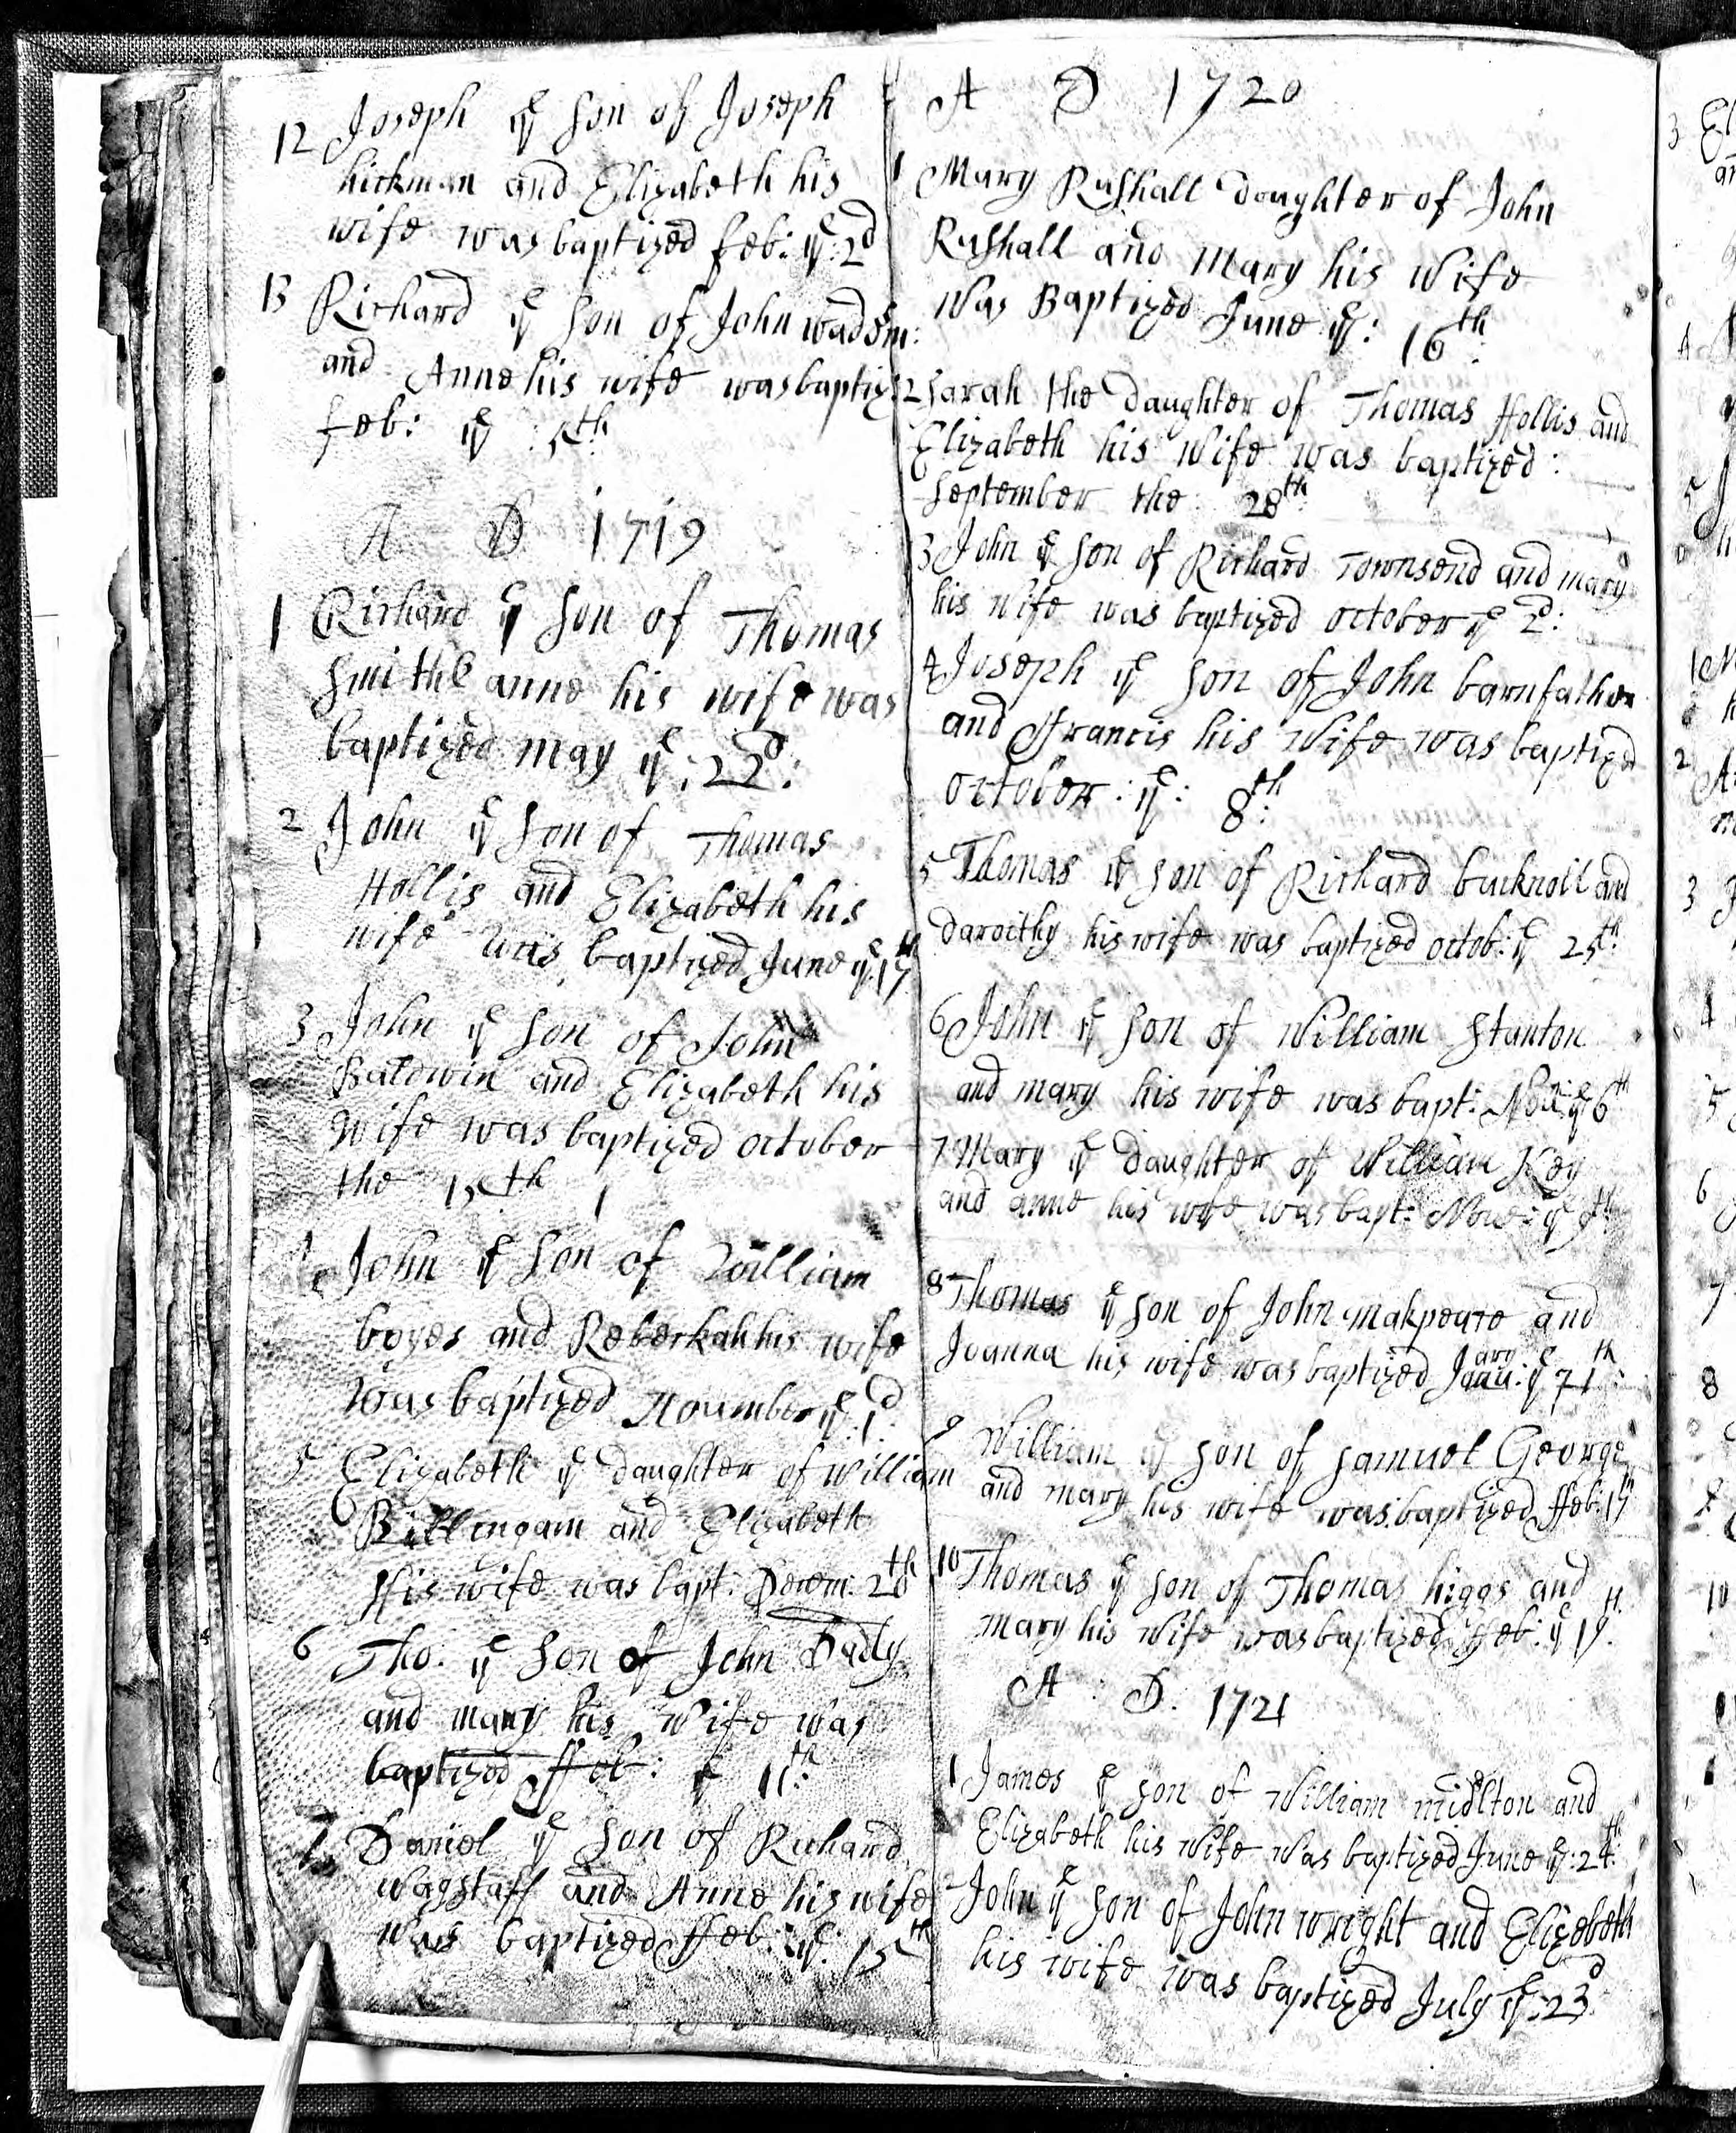 12 Joseph ye son of Joseph
hickman and Elizabeth his
wife was baptized feb: ye: 2d
13 Richard ye son of John wadsm:
and Anne his wife was baptiz:
feb: ye: 5th
A D 1719
1 Richard ye son of Thomas
Smith & anne his wife was
baptized may ye: 22d:
2 John ye son of Thomas
Hollis and Elizabeth his
wife was baptized June ye 17th
3 John ye son of John
Baldwin and Elizabeth his
Wife was baptized october
the 15th
John ye son of William
boyes and Rebeckah his wife
was baptized Nouember ye: 1d
5 Elizabeth ye daughter of William
Billingam and Elizabeth
His wife was bapt: Decem: 28th
6 Tho: ye son of John Dadly
and mary his wife was
baptized ffeb: ye 11th:
7 Daniel ye son of Richard
Wagstaff and Anne his wife
was baptized ffeb: ye: 15th
A D 1720
1 Mary Rushall doughter of John
Rushall and mary his Wife
Was Baptized June ye: 16th:
2 Sarah the daughter of Thomas Hollis and
Elizabeth his Wife was baptized:
September the 28th
3 John ye son of Richard Townsend and mary
his wife was baptized october ye 2d:
4 Joseph ye son of John barnfather
and ffrancis his wife was baptized
october: ye: 8th:
5 Thomas ye son of Richard bucknoll and
daroithy his wife was baptized octob: ye 25th
6 John ye son of William Stanton
and mary his wife was bapt: Nou: ye 6th
7 Mary ye daughter of William Key
and anne his wife was bapt: Nove: ye 9th:
8 Thomas ye son of John makpeace and
Joanna his wife was baptized Janu:ary ye 71th:
9 William ye son of Samuel George
and mary his wife was baptized ffeb: 17th
10 Thomas ye son of Thomas higgs and
mary his Wife was baptized ffeb: ye 19th.
A: D: 1721
1 James ye son of William midlton and
Elizabeth his Wife Was baptized June ye: 24th:
2 John ye son of John wright and Elizebeth
his wife was baptized July ye: 23d